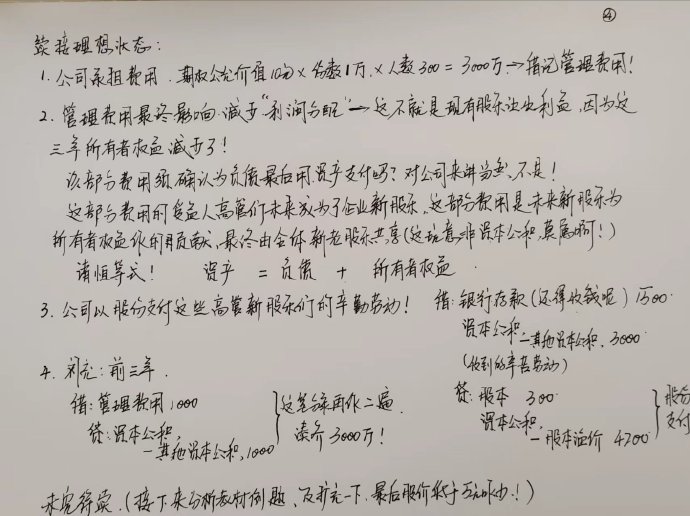 ④
续接理想状态:
1. 公司承担费用. 期权公允价值10元 × 份数1万 × 人数300 = 3000万 → 借记管理费用!
2. 管理费用最终影响减少"利润分配" → 这不就是现有股东让出利益, 因为这
三年所有者权益减少了!
该部分费用须确认为负债最后用资产支付吗? 对公司来讲当然不是!
这部分费用的受益人高管们未来成为了企业新股东, 这部分费用是未来新股东为
所有者权益作的贡献, 最终由全体新老股东共享(这玩意非资本公积, 莫属啊!)
请恒等式! 资产 = 负债 + 所有者权益
3. 公司以股份支付这些高管新股东们的辛勤劳动!
借: 银行存款(还得收钱呢) 1500
资本公积
—其他资本公积, 3000
(收到的辛苦劳动)
贷: 股本 300
资本公积,
—股本溢价 4200
股份
支付
4. 补充: 前三年.
借: 管理费用 1000
贷: 资本公积,
—其他资本公积, 1000
这笔分录再作二遍
凑齐3000万!
未完待续. (接下来分析教材例题, 及扩充一下, 最后股价低于5元咋办!)